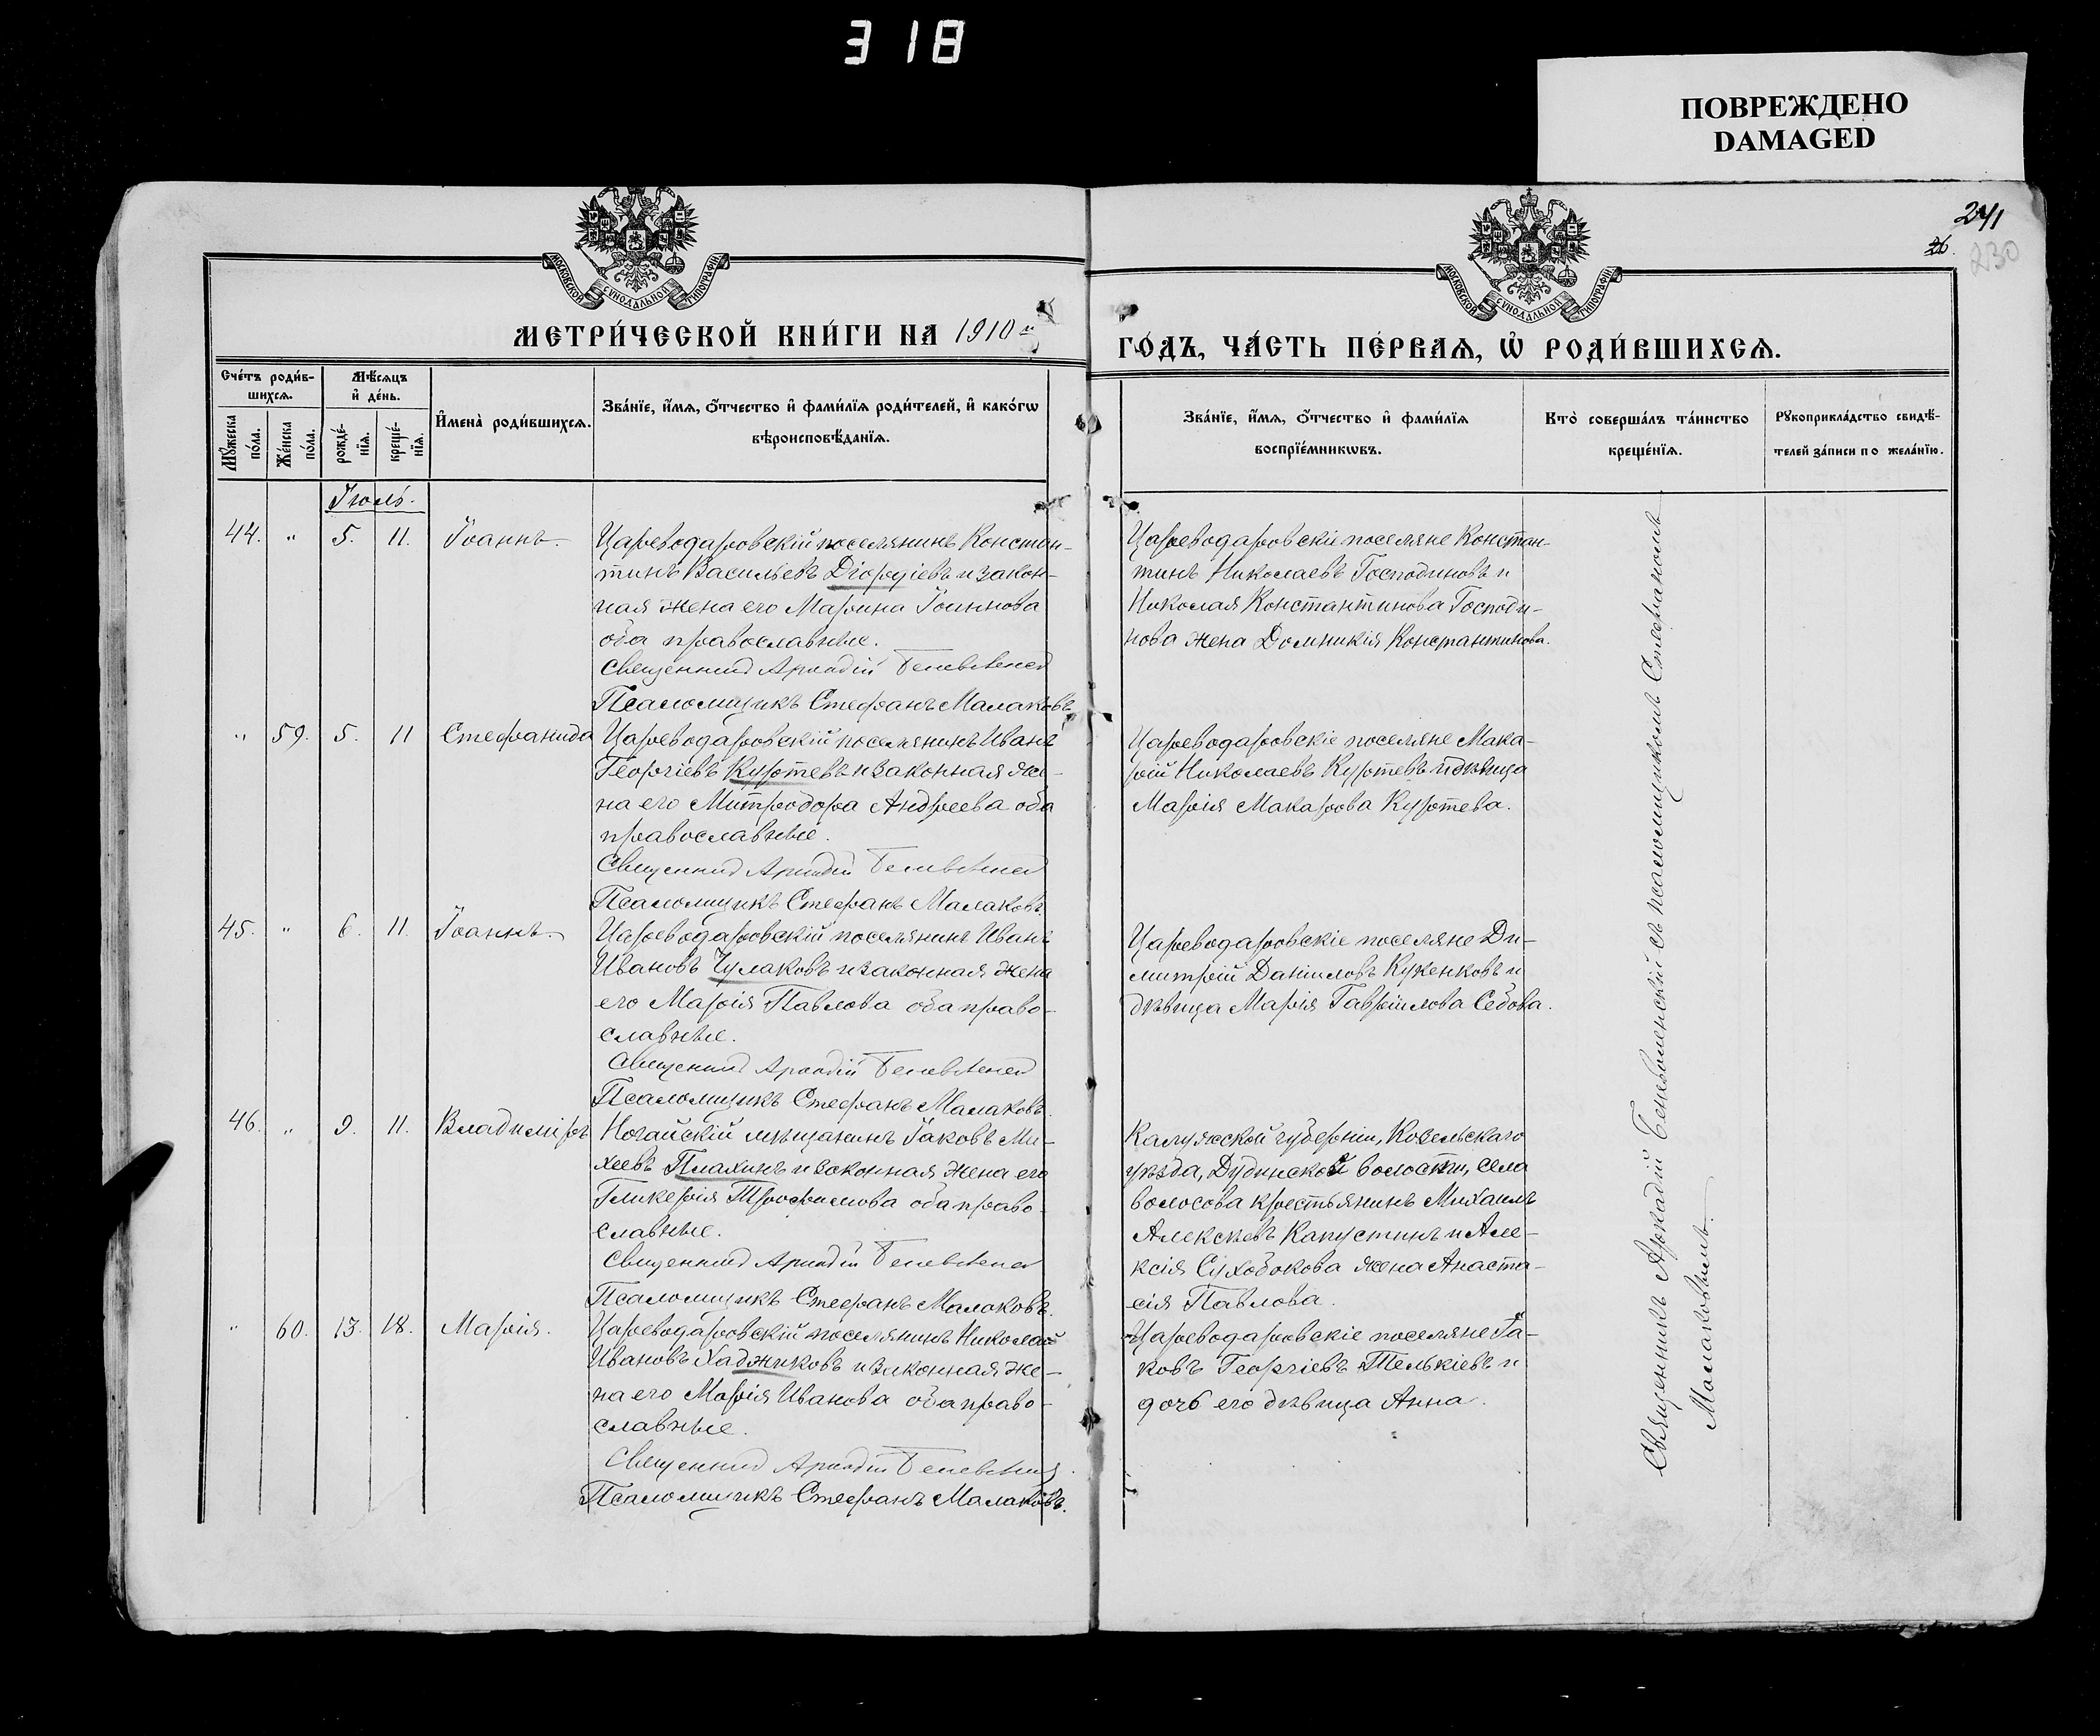 318
ПОВРЕЖДЕНО
DAMAGED
241
26.
230
МОСКОВСКОЙ СѴНОДАЛЬНОЙ ТИПОГРАФІИ
МОСКОВСКОЙ СѴНОДАЛЬНОЙ ТИПОГРАФІИ
МЕТРИ́ЧЕСКОЙ КНИ́ГИ НА 1910 й
ГО́ДЪ, ЧА́СТЬ ПЕ́РВАѦ, Ѡ҆ РОДИ́ВШИХСѦ.
Сче́тъ роди́в-
шихсѧ.
Мѣ́сѧцъ
и҆ де́нь.
Мꙋ́жеска
по́ла.
Же́нска
по́ла.
рожде́-
нїѧ.
креще́-
нїѧ.
И҆мена̀ роди́вшихсѧ.
Зва́нїе, и҆́мѧ, ѻ҆́тчество и҆ фами́лїѧ роди́телей, и҆ како́гѡ
вѣроисповѣ́данїѧ.
Зва́нїе, и҆́мѧ, ѻ҆́тчество и҆ фами́лїѧ
воспрїе́мникѡвъ.
Кто̀ соверша́лъ та́инство
креще́нїѧ.
Рꙋкоприкла́дство свидѣ́-
телей за́писи по жела́нїю.
Іюль.
44. " 5. 11. Іоаннъ.
Цареводаровскій поселянинъ Констан-
тинъ Васильевъ Діордіевъ и закон-
ная жена его Марина Іоаннова
оба православные.
Священник Аркадій
Псаломщикъ Стефанъ Малаковъ
Цареводаровскіе поселяне Констан-
тинъ Николаевъ Господиновъ и
Николая Константинова Господи-
нова жена Домникія Константинова.
" 59. 5. 11 Стефанида
Цареводаровскій поселянинъ Иванъ
Георгіевъ Куртевъ и законная же-
на его Митродора Андреева оба
православные.
Священник Аркадій
Псаломщикъ Стефанъ Малаковъ
Цареводаровскіе поселяне Мака-
рій Николаевъ Куртевъ и дѣвица
Марія Макарова Куртева.
45. " 6. 11. Іоаннъ.
Цареводаровскій поселянинъ Иванъ
Ивановъ Чулаковъ и законная жена
его Марія Павлова оба право-
славные.
Священник Аркадій
Псаломщикъ Стефанъ Малаковъ.
Цареводаровскіе поселяне Ди-
митрій Даниловъ Куженковъ и
дѣвица Марія Гавріилова Седова.
46. " 9. 11. Владиміръ
Ногайскій мѣщанинъ Іаковъ Ми-
хеевъ Плахинъ и законная жена его
Гликерія Трофимова оба право-
славные.
Священник Аркадій
Псаломщикъ Стефанъ Малаковъ.
Калужской губерніи, Козельскаго
уѣзда, Дудинской волости, села
Волосова крестьянинъ Михаилъ
Алексѣевъ Капустинъ и Але-
ксія Сухобокова жена Анаста-
сія Павлова.
" 60. 13. 18. Марія.
Цареводаровскій поселянинъ Николай
Ивановъ Хаджиковъ и законная же-
на его Марія Иванова оба право-
славные.
Священник Аркадій
Псаломщикъ Стефанъ Малаковъ.
Цареводаровскіе поселяне Іа-
ковъ Георгіевъ Телькіевъ и
дочь его дѣвица Анна.
Священникъ Аркадій съ псаломщикомъ Стефаномъ
Малаковымъ.